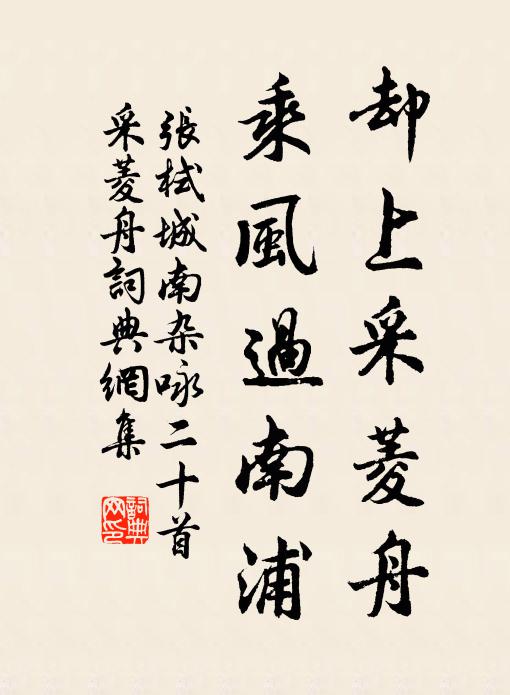 却上采菱舟
乘風過南浦
張栻城南杂咏二十首
采菱舟詞典網集
詞典网印